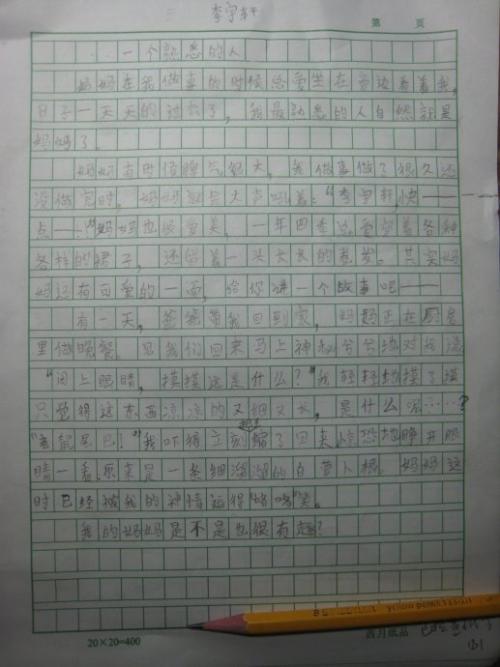 李宇轩
第 页
一个熟悉的人
妈妈在我做事的时候总爱坐在旁边看着我,
日子一天天的过去了,我最熟悉的人自然就是
妈妈了。
妈妈有时候脾气很大,我做事做了很久还
没做完时,妈妈就会大声叫着:“李宇轩,快——
点——”妈妈也很爱美,一年四季总爱穿着各种
各样的裙子,还留着一头长长的卷发。其实妈
妈还有可爱的一面,给你讲一个故事吧——
有一天,爸爸带我回到家,妈妈正在厨房
里做晚餐。见我们回来马上神秘兮兮地对我说
“闭上眼睛,摸摸这是什么?”我轻轻地摸了摸
只觉得这东西凉凉的又细又长,是什么呢……?
“老鼠尾巴!”我吓得立刻缩了回来,惊恐地睁开眼
睛一看,原来是一条细溜溜的白萝卜根。妈妈这
时已经被我的神情逗得咯咯笑。
我的妈妈是不是也很有趣?
20×20=400